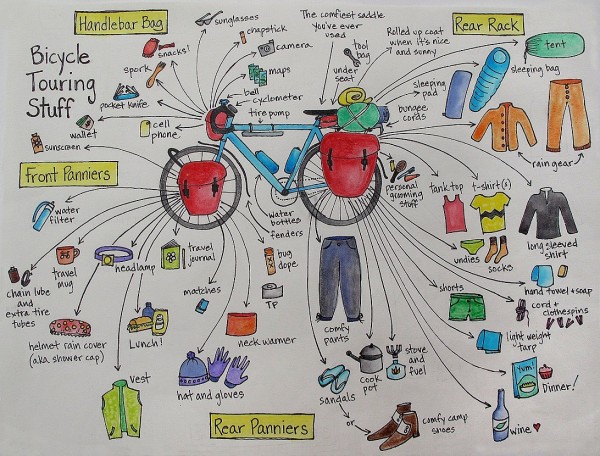 Bicycle
Touring
Stuff
Handlebar Bag
sunglasses
chapstick
camera
snacks!
spork
maps
pocket knife
bell
cyclometer
tire pump
wallet
cell
phone
sunscreen
The comfiest saddle
you've ever
used
tool
bag
under
seat
Rolled up coat
when it's nice
and sunny
Rear Rack
tent
sleeping bag
sleeping
pad
bungee
cords
rain gear
Front Panniers
water
filter
chain lube
and
extra tire
tubes
travel
mug
headlamp
travel
journal
water
bottles
fenders
bug
dope
TP
matches
helmet rain cover
(aka shower cap)
Lunch!
neck warmer
vest
hat and gloves
Rear Panniers
personal
grooming
stuff
tank top
t-shirt(s)
long sleeved
shirt
undies
socks
hand towel + soap
shorts
cord +
clothespins
light weight
tarp
comfy
pants
cook
pot
stove
and
fuel
Yum!
Dinner!
sandals
or
comfy camp
shoes
wine ♥